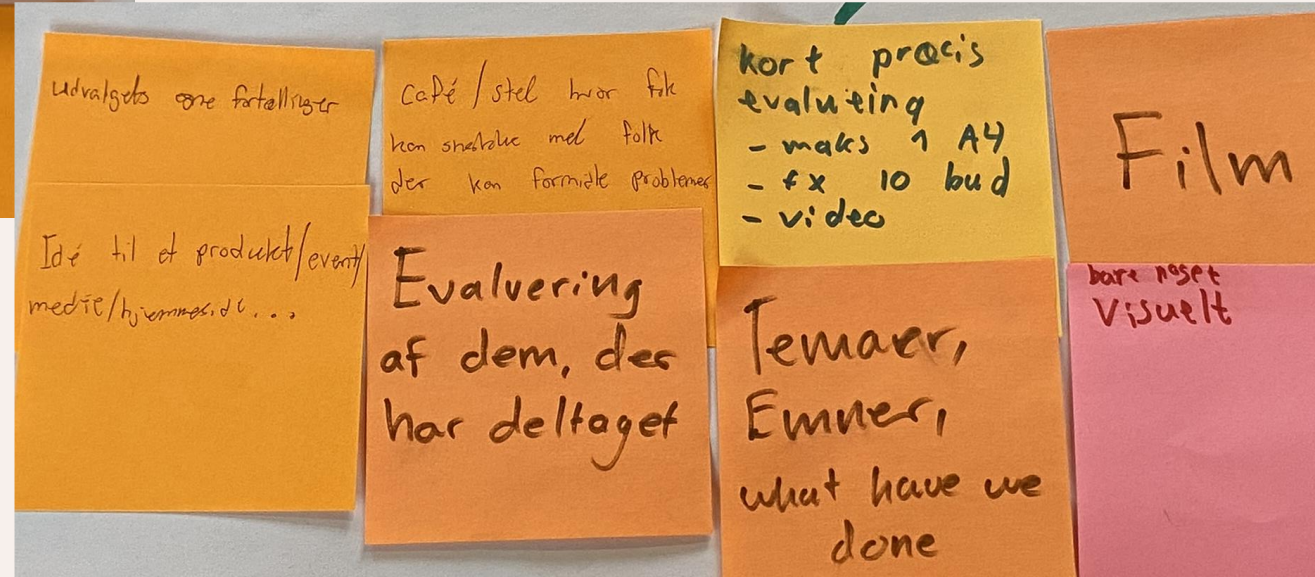 udvalgets egne fortællinger
Idé til et produkt/event/
medie/hjemmeside...
Café / sted hvor folk
kan snakke med folk
der kan formidle problemer
Evaluering
af dem, der
har deltaget
kort præcis
evaluering
- maks 1 A4
- fx 10 bud
- video
Temaer,
Emner,
what have we
done
Film
bare noget
Visuelt